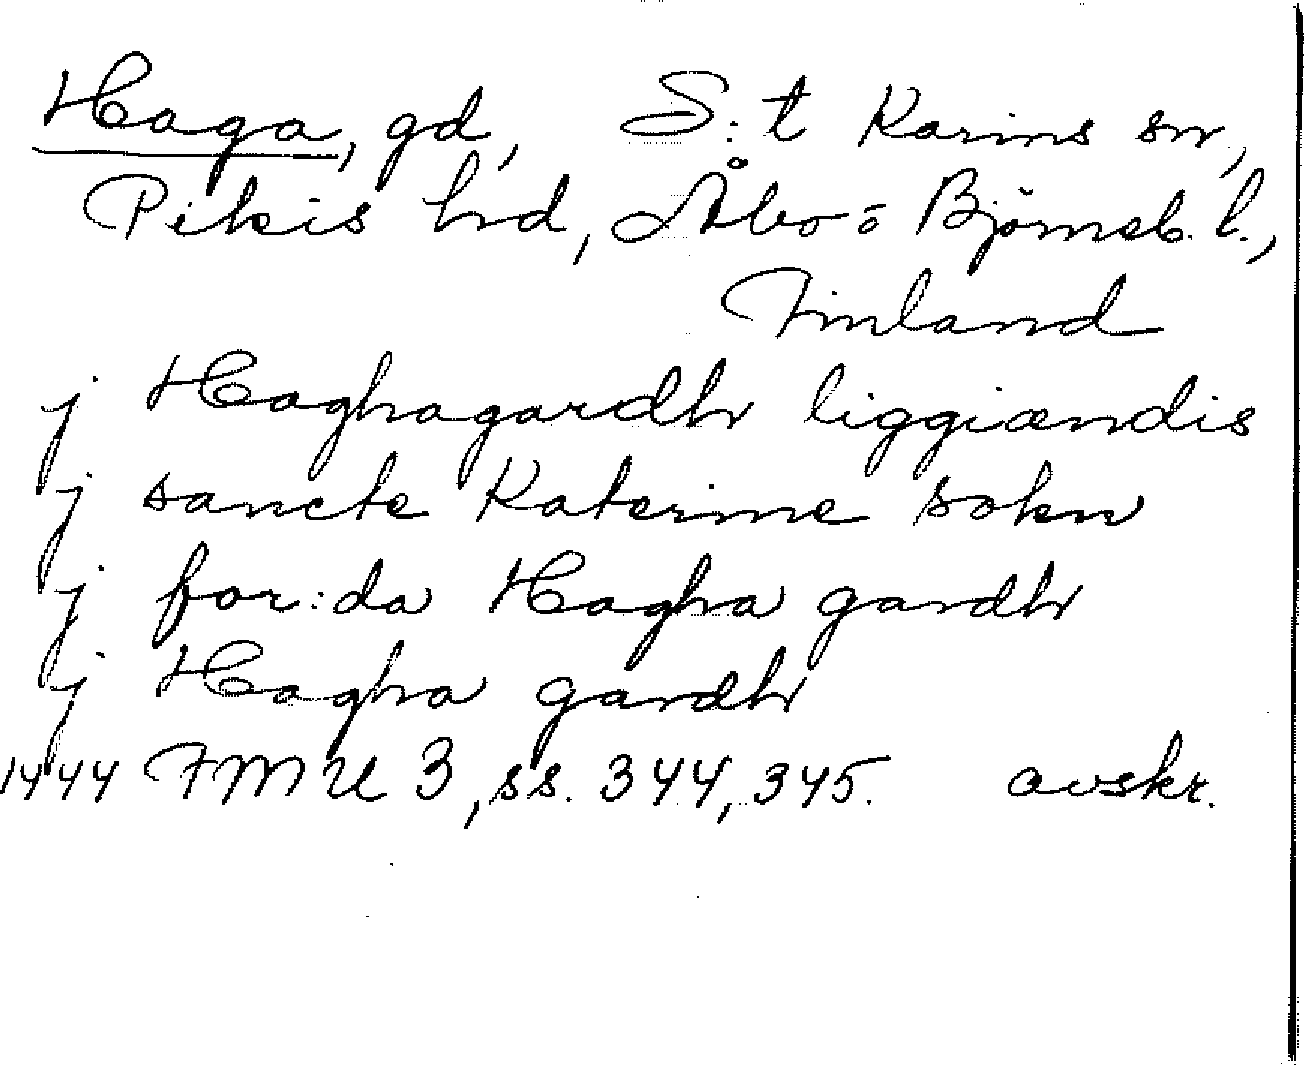 Haga, gd, S:t Karins sn,
Pikis hd, Åbo o Björneb. l.,
Finland
j Haghagardh liggiændis
j sancte Katerine sokn
j for:da Hagha gardh
j Hagha gardh
1444 FMU 3, ss. 344, 345. avskr.